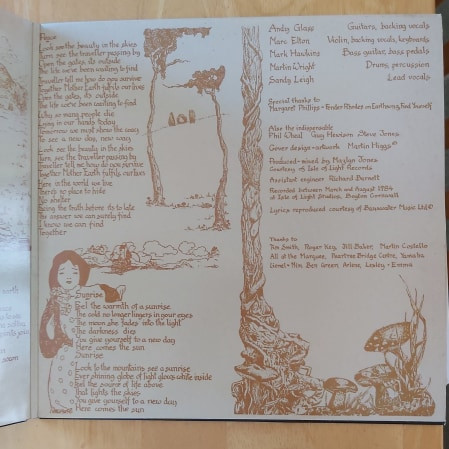 Fugue
Look see the beauty in the skies
Turn see the traveller passing by
Open the gates, its outside
The life we've been waiting to find
Traveller tell me how do you survive
Together Mother Earth fulfils our lives
Open the gates, its outside
The life we've been waiting to find
Why so many people die
Living in our hands today
Tomorrow we must show the way
To see a new day, new way
Look see the beauty in the skies
Turn see the traveller passing by
Traveller tell me how do you survive
Together Mother Earth fulfils ourselves
Here in the world we live
There's no place to hide
No shelter
Bring the truth before its to late
The answer we can surely find
I know we can find
Together
Sunrise
Feel the warmth of a sunrise
The cold no longer lingers in your eyes
The moon she fades into the light
The darkness dies
You give yourself to a new day
Here comes the sun
Sunrise
Look to the mountains see a sunrise
Ever shining globe of light glows white inside
Feel the source of life above
That lights the skies
You give yourself to a new day
Here comes the sun
Andy Glass Guitars, backing vocals
Marc Elton Violin, backing vocals, keyboards
Mark Hawkins Bass guitar, bass pedals
Martin Wright Drums, percussion
Sandy Leigh Lead vocals
Special thanks to
Margaret Phillips - Fender Rhodes on Earthsong, Find Yourself
Also the indispensible
Phil Cheal Guy Hewison Steve Jones
Cover design + artwork Martin Higgs ©
Produced + mixed by Maxlyn Jones
Courtesy of Isle of Light Records
Assistant engineer Richard Barnett
Recorded between March and August 1984
at Isle of Light Studios,
Cornwall
Lyrics reproduced courtesy of Music Ltd ©
Thanks to
Tim Smith, Roger Kay, Jill Baker, Martin Costello
All at the Marquee, Peartree Bridge Centre, Yamaha
Lionel + Kim, Ben Green, Arlene, Lesley + Emma